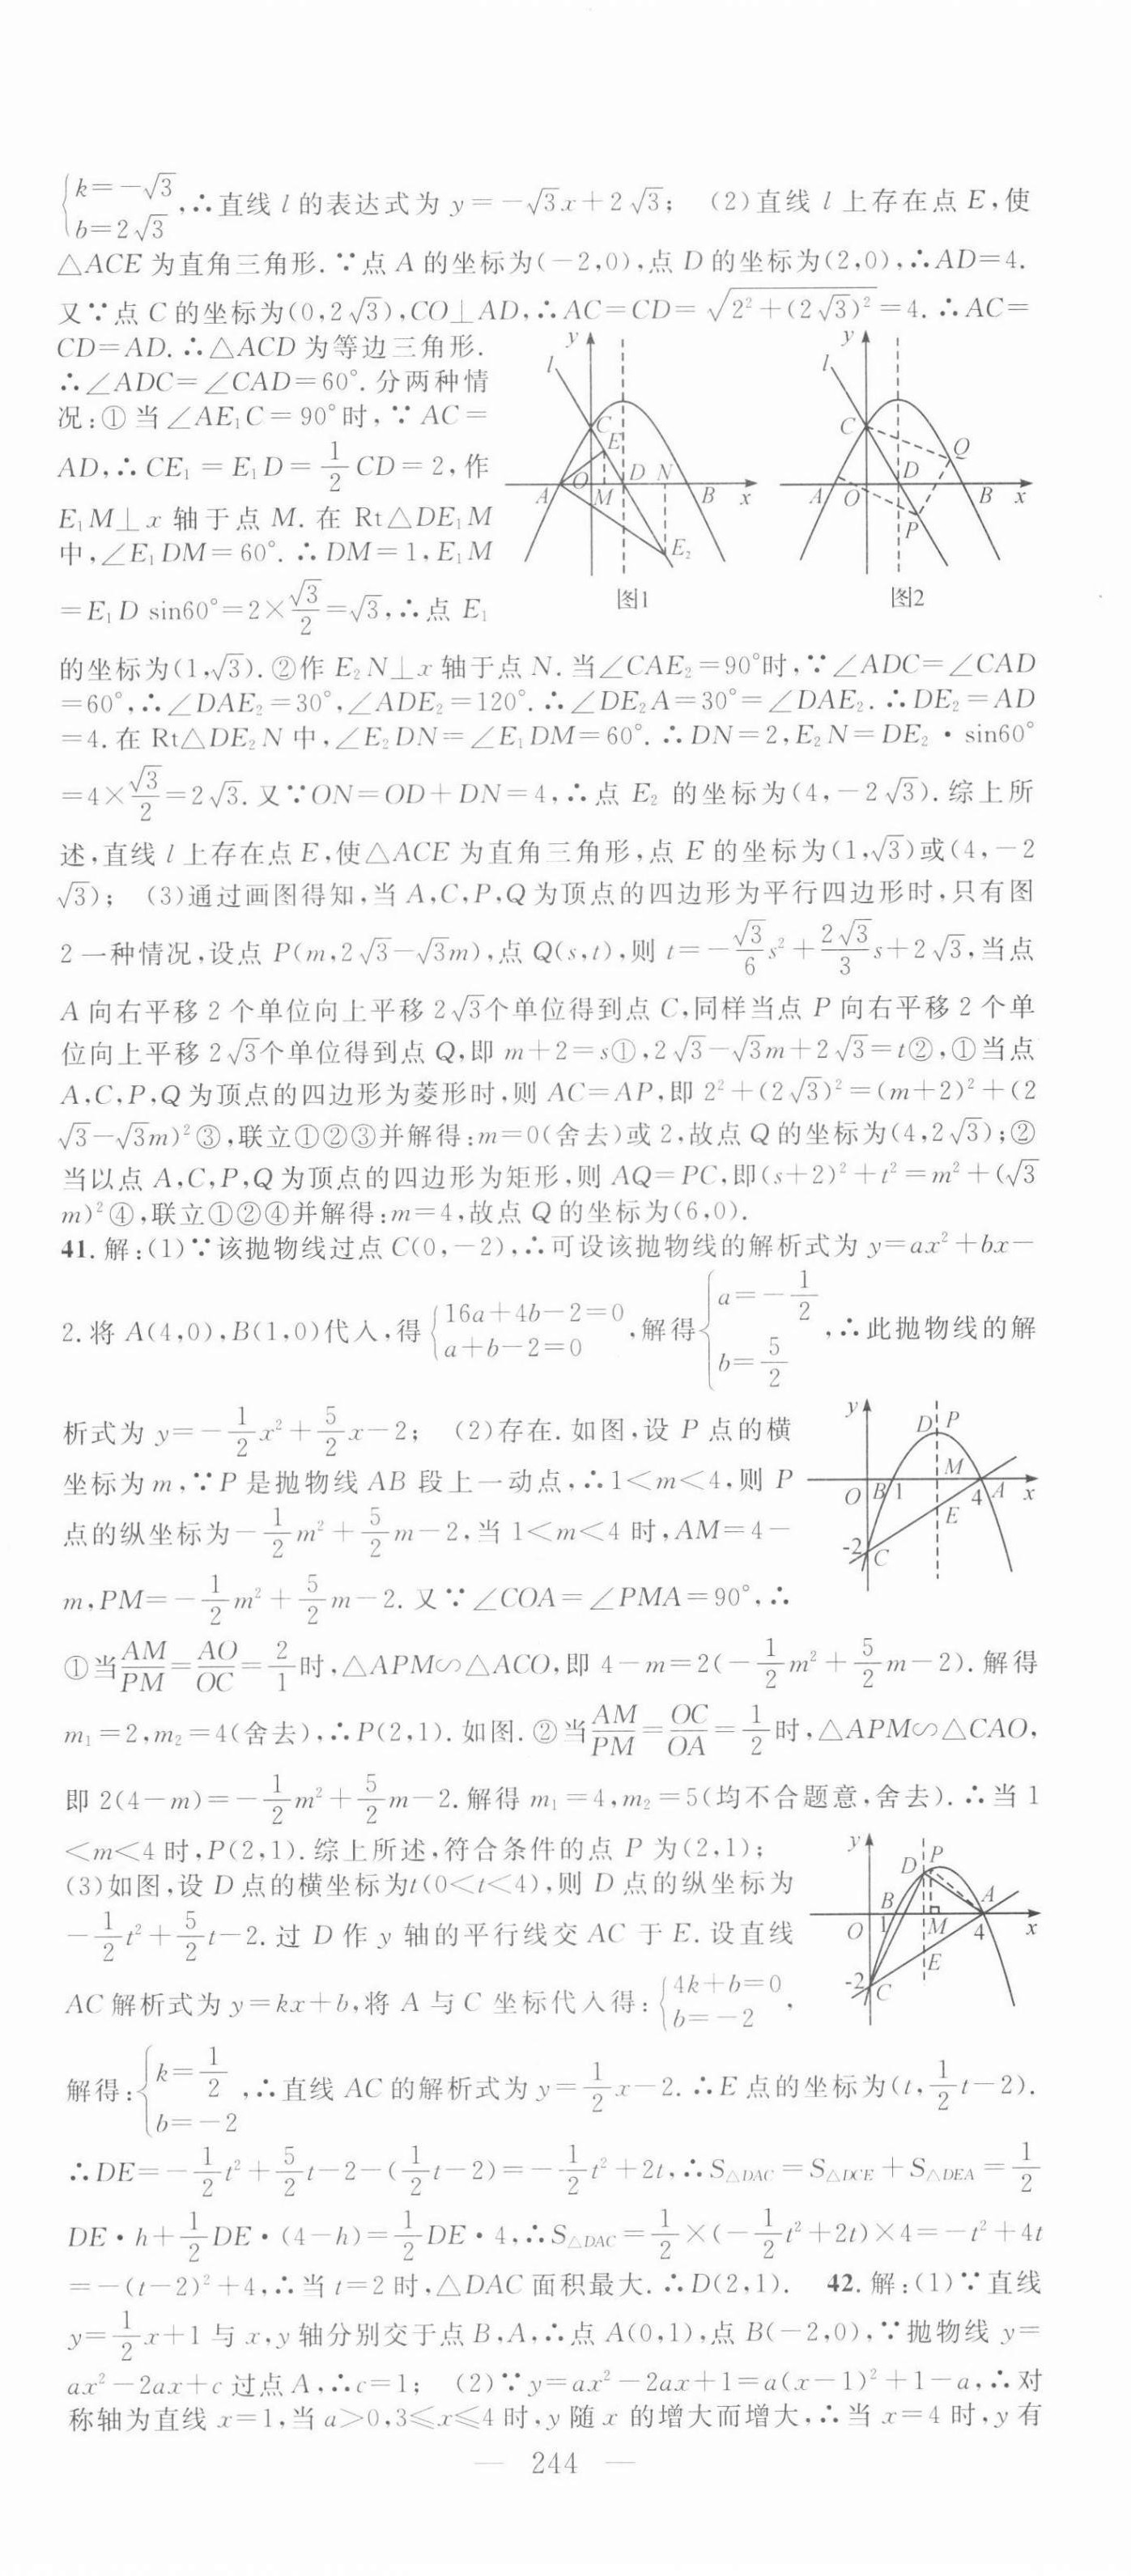 {k=-√3
b=2√3 ,∴直线 l 的表达式为 y=-√3x+2√3; (2)直线 l 上存在点 E,使
△ACE 为直角三角形.∵点 A 的坐标为(-2,0),点 D 的坐标为(2,0),∴AD=4.
又∵点 C 的坐标为(0,2√3),CO⊥AD,∴AC=CD=√(2²+(2√3)²)=4.∴AC=
CD=AD.∴△ACD 为等边三角形.
∴∠ADC=∠CAD=60°.分两种情
况:①当∠AE₁C=90°时,∵AC=
AD,∴CE₁=E₁D=1/2CD=2,作
E₁M⊥x 轴于点 M.在 Rt△DE₁M
中,∠E₁DM=60°.∴DM=1,E₁M
=E₁D sin60°=2×√3/2=√3,∴点 E₁
y
l
C
E
A
O
M
D
N
B
x
E₂
图1
y
l
C
Q
D
A
O
B
x
P
图2
的坐标为(1,√3).②作 E₂N⊥x 轴于点 N.当∠CAE₂=90°时,∵∠ADC=∠CAD
=60°,∴∠DAE₂=30°,∠ADE₂=120°.∴∠DE₂A=30°=∠DAE₂.∴DE₂=AD
=4.在 Rt△DE₂N 中,∠E₂DN=∠E₁DM=60°.∴DN=2,E₂N=DE₂·sin60°
=4×√3/2=2√3.又∵ON=OD+DN=4,∴点 E₂ 的坐标为(4,-2√3).综上所
述,直线 l 上存在点 E,使△ACE 为直角三角形,点 E 的坐标为(1,√3)或(4,-2
√3); (3)通过画图得知,当 A,C,P,Q 为顶点的四边形为平行四边形时,只有图
2 一种情况,设点 P(m,2√3-√3m),点 Q(s,t),则 t=-√3/6s²+2√3/3s+2√3,当点
A 向右平移 2 个单位向上平移 2√3个单位得到点 C,同样当点 P 向右平移 2 个单
位向上平移 2√3个单位得到点 Q,即 m+2=s①,2√3-√3m+2√3=t②,①当点
A,C,P,Q 为顶点的四边形为菱形时,则 AC=AP,即 2²+(2√3)²=(m+2)²+(2
√3-√3m)²③,联立①②③并解得:m=0(舍去)或 2,故点 Q 的坐标为(4,2√3);②
当以点 A,C,P,Q 为顶点的四边形为矩形,则 AQ=PC,即(s+2)²+t²=m²+(√3
m)²④,联立①②④并解得:m=4,故点 Q 的坐标为(6,0).
41.解:(1)∵该抛物线过点 C(0,-2),∴可设该抛物线的解析式为 y=ax²+bx-
2.将 A(4,0),B(1,0)代入,得{16a+4b-2=0
a+b-2=0 ,解得{a=-1/2
b=5/2 ,∴此抛物线的解
析式为 y=-1/2x²+5/2x-2; (2)存在.如图,设 P 点的横
坐标为 m,∵P 是抛物线 AB 段上一动点,∴1<m<4,则 P
点的纵坐标为-1/2m²+5/2m-2,当 1<m<4 时,AM=4-
m,PM=-1/2m²+5/2m-2.又∵∠COA=∠PMA=90°,∴
y
D
P
M
O
B
1
4
A
x
E
-2
C
①当AM/PM=AO/OC=2/1时,△APM∽△ACO,即 4-m=2(-1/2m²+5/2m-2).解得
m₁=2,m₂=4(舍去),∴P(2,1).如图.②当AM/PM=OC/OA=1/2时,△APM∽△CAO,
即 2(4-m)=-1/2m²+5/2m-2.解得 m₁=4,m₂=5(均不合题意,舍去).∴当 1
<m<4 时,P(2,1).综上所述,符合条件的点 P 为(2,1);
(3)如图,设 D 点的横坐标为t(0<t<4),则 D 点的纵坐标为
-1/2t²+5/2t-2.过 D 作 y 轴的平行线交 AC 于 E.设直线
AC 解析式为 y=kx+b,将 A 与 C 坐标代入得:{4k+b=0
b=-2 ,
y
D
P
B
A
O
1
M
4
x
E
-2
C
解得:{k=1/2
b=-2 ,∴直线 AC 的解析式为 y=1/2x-2.∴E 点的坐标为(t,1/2t-2).
∴DE=-1/2t²+5/2t-2-(1/2t-2)=-1/2t²+2t,∴S△DAC=S△DCE+S△DEA=1/2
DE·h+1/2DE·(4-h)=1/2DE·4,∴S△DAC=1/2×(-1/2t²+2t)×4=-t²+4t
=-(t-2)²+4,∴当 t=2 时,△DAC 面积最大.∴D(2,1). 42.解:(1)∵直线
y=1/2x+1 与 x,y 轴分别交于点 B,A,∴点 A(0,1),点 B(-2,0),∵抛物线 y=
ax²-2ax+c 过点 A,∴c=1; (2)∵y=ax²-2ax+1=a(x-1)²+1-a,∴对
称轴为直线 x=1,当 a>0,3≤x≤4 时,y 随 x 的增大而增大,∴当 x=4 时,y 有
— 244 —